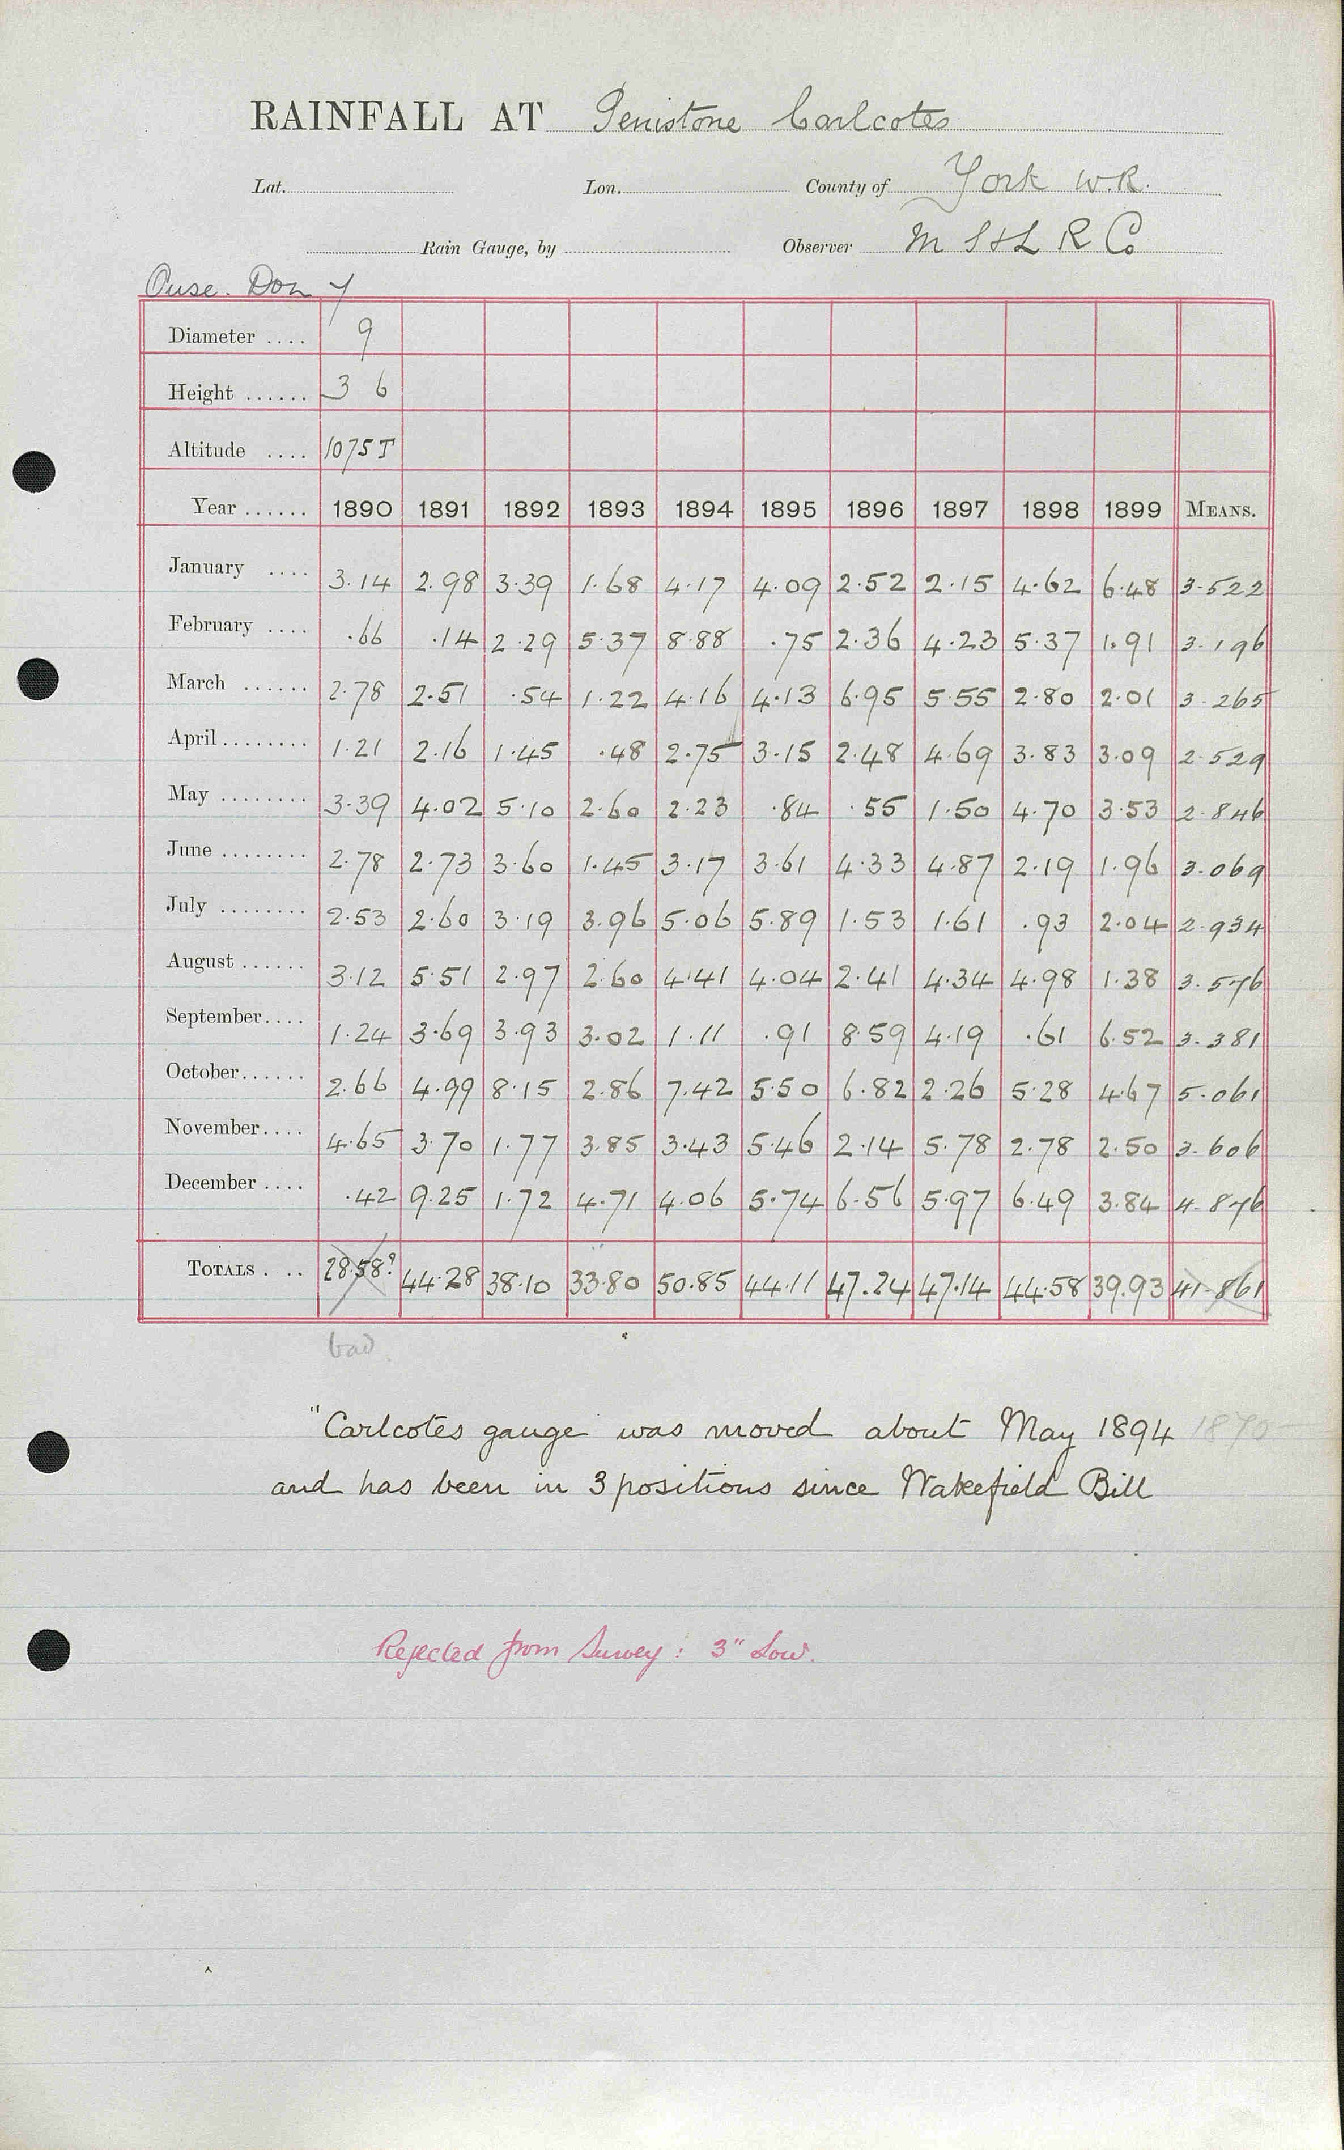 RAINFALL AT Penistone Carlcotes
Lat. Lon. County of York W.R.
Rain Gauge, by Observer M S & L R Co
Ouse. Don 7
Diameter .... 9
Height ...... 3 6
Altitude .... 1075 T
Year ...... 1890 1891 1892 1893 1894 1895 1896 1897 1898 1899 MEANS.
January .... 3.14 2.98 3.39 1.68 4.17 4.09 2.52 2.15 4.62 6.48 3.522
February .... .66 .14 2.29 5.37 8.88 .75 2.36 4.23 5.37 1.91 3.196
March ...... 2.78 2.51 .54 1.22 4.16 4.13 6.95 5.55 2.80 2.01 3.265
April ........ 1.21 2.16 1.45 .48 2.75 3.15 2.48 4.69 3.83 3.09 2.529
May ........ 3.39 4.02 5.10 2.60 2.23 .84 .55 1.50 4.70 3.53 2.846
June ........ 2.78 2.73 3.60 1.45 3.17 3.61 4.33 4.87 2.19 1.96 3.069
July ........ 2.53 2.60 3.19 3.96 5.06 5.89 1.53 1.61 .93 2.04 2.934
August ...... 3.12 5.51 2.97 2.60 4.41 4.04 2.41 4.34 4.98 1.38 3.576
September.... 1.24 3.69 3.93 3.02 1.11 .91 8.59 4.19 .61 6.52 3.381
October...... 2.66 4.99 8.15 2.86 7.42 5.50 6.82 2.26 5.28 4.67 5.061
November.... 4.65 3.70 1.77 3.85 3.43 5.46 2.14 5.78 2.78 2.50 3.606
December .... .42 9.25 1.72 4.71 4.06 5.74 6.56 5.97 6.49 3.84 4.876
TOTALS . ... 28.58? 44.28 38.10 33.80 50.85 44.11 47.24 47.14 44.58 39.93 41.861
bad.
"Carlcotes gauge was moved about May 1894 1870
and has been in 3 positions since Wakefield Bill
Rejected from Survey: 3" Low.